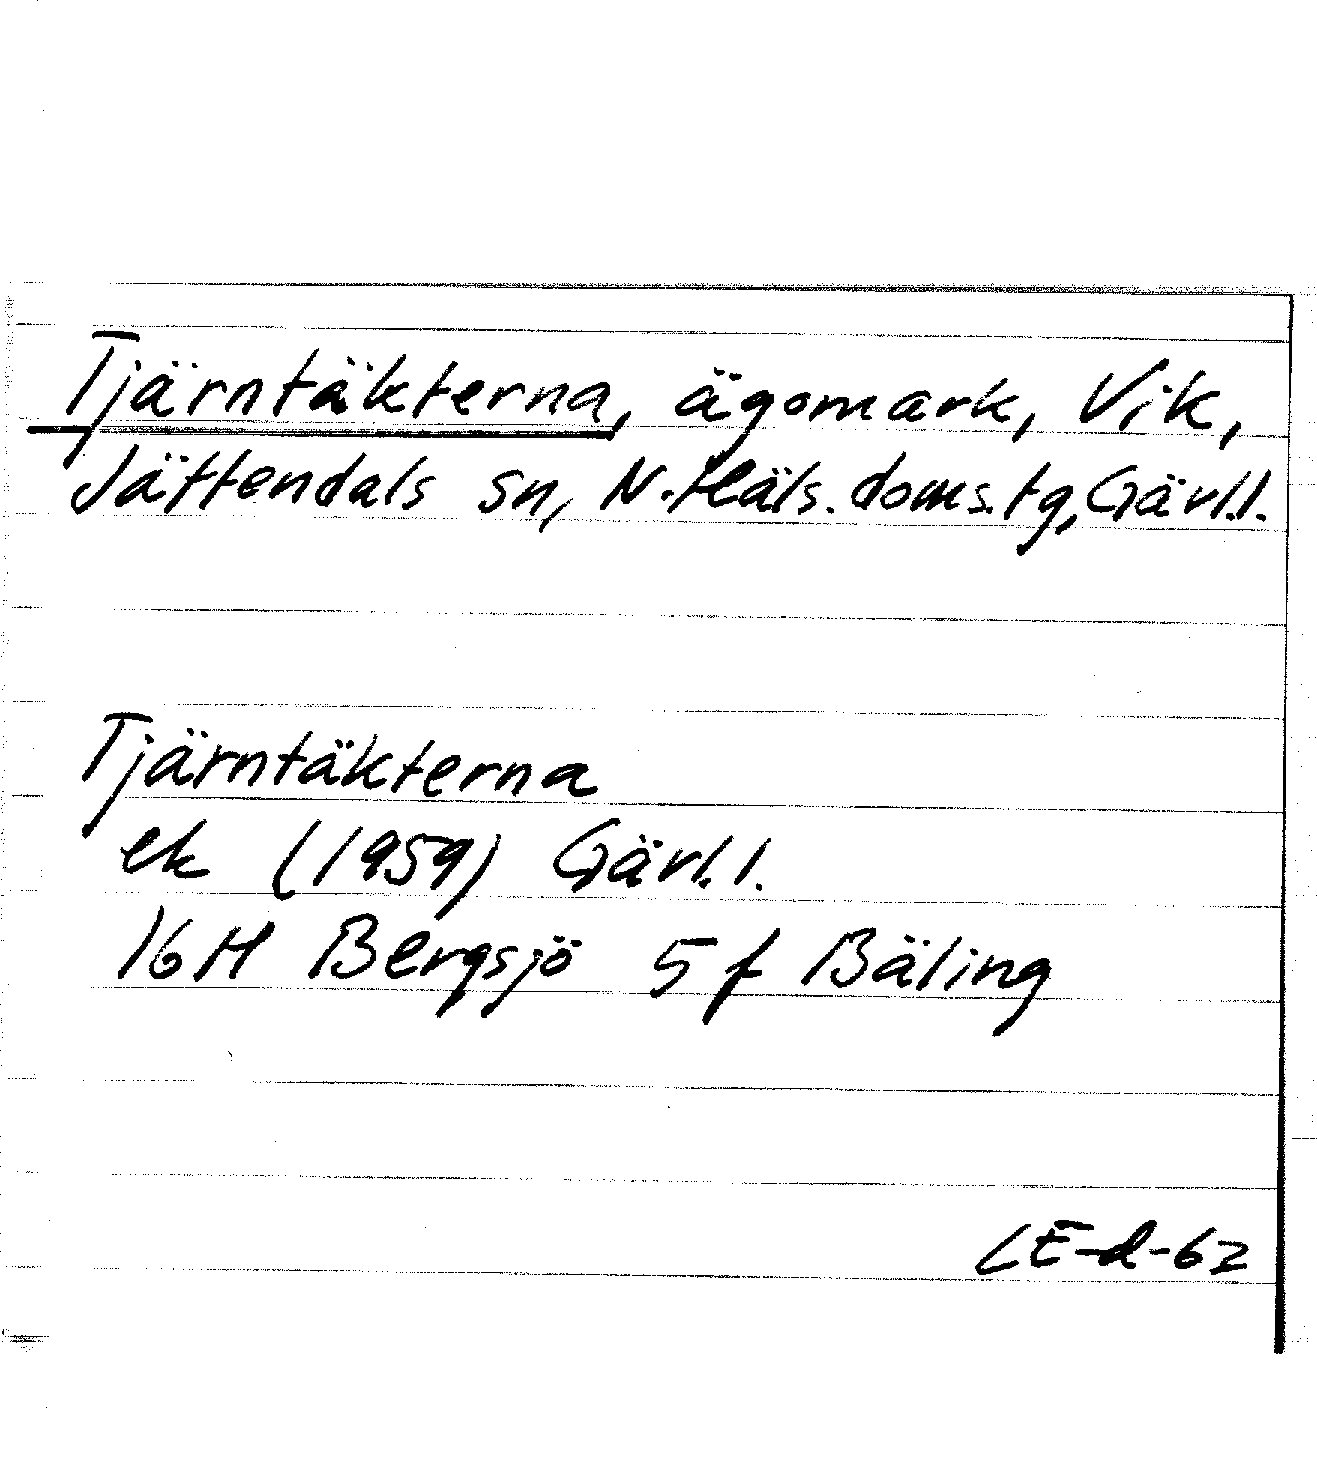 Tjärntäkterna, ägomark, Vik,
Jättendals sn, N. Häls. doms. tg, Gävl.l.
Tjärntäkterna
ek (1959) Gävl.l.
16H Bergsjö 5f Bäling
LE-d-62